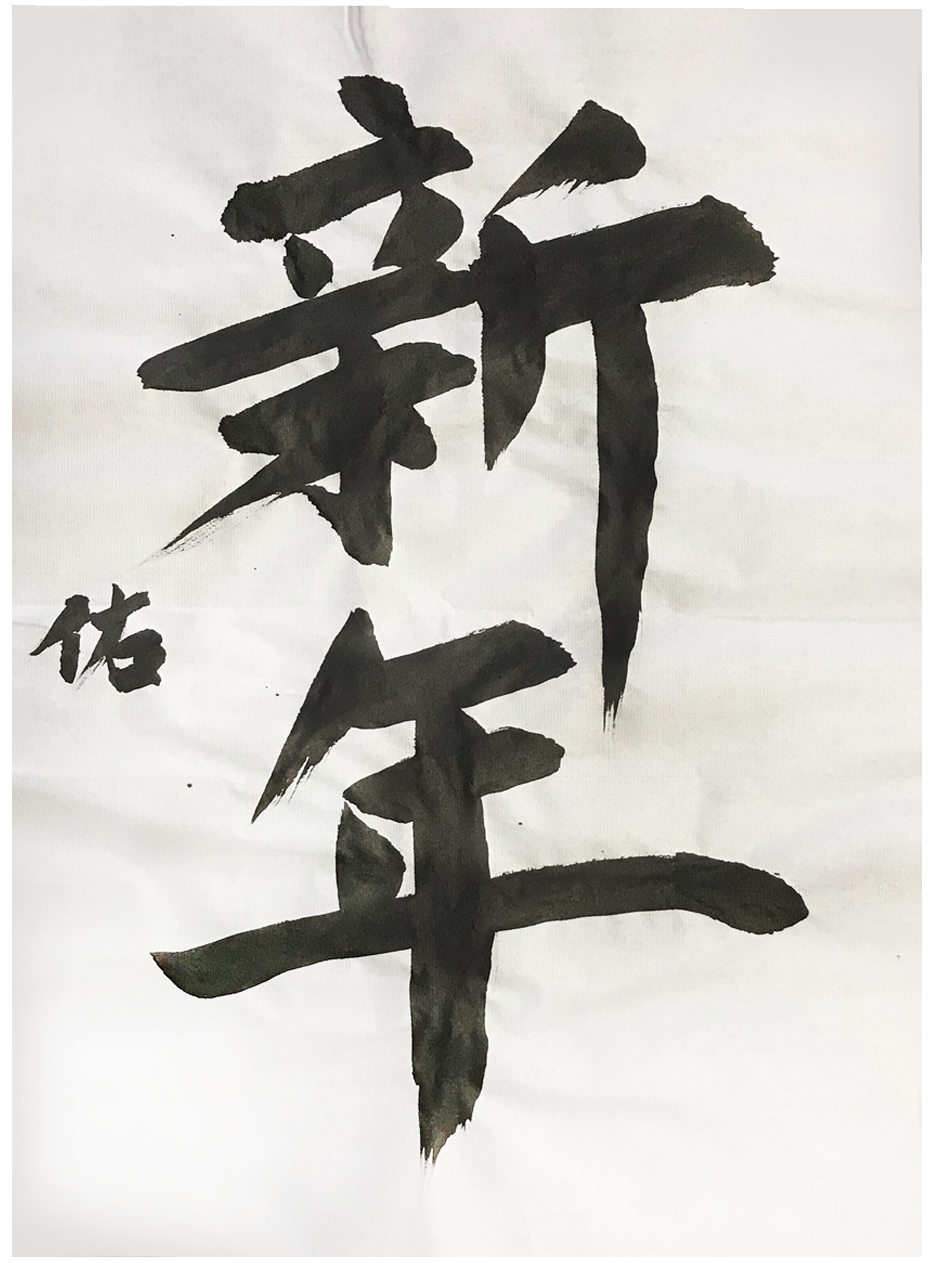 新年
佑